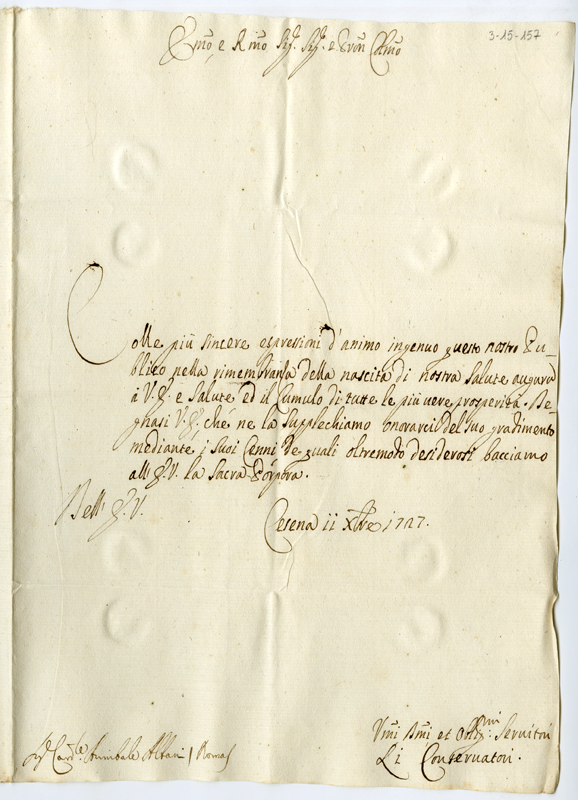 3-15-157
Em̃o, e Rm̃o Sig.r Sig.r e Pron Colm̃o
Colle più sincere espressioni d'animo ingenuo questo nostro Pu-
blico nella rimembransa della nascita di nostra Salute augura
à V. E. e Salute ed il Cumulo di tutte le più vere prosperità. De-
gnasi V. E., ché ne la Supplechiamo onorarci del suo gradimento
mediante i suoi Cenni de quali oltremodo desiderosi bacciamo
all' E. V. la Sacra Porpora.
Dell' E. V.
Cesena 11 Xbre 1727.
Vm̃i Dm̃i et Obblig.mi Servitori
Li Conservatori.
Sr Card.le Annibale Albani / Roma